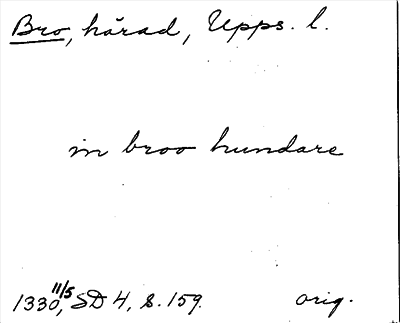 Bro, härad, Upps. l.
in broo hundare
1330 11/5, SD 4, s. 159. orig.